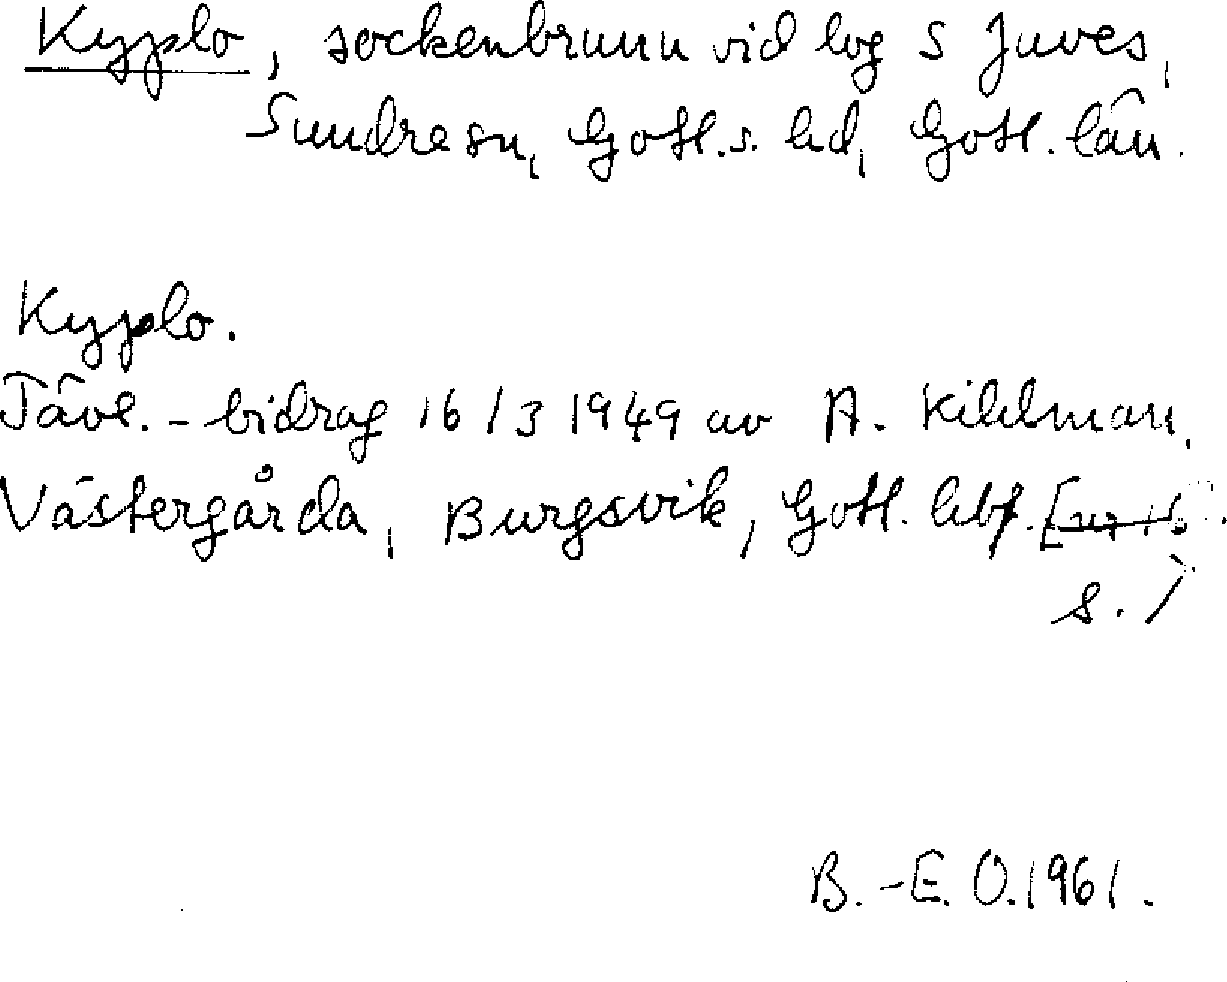 Kypplo, sockenbrunn vid log S Juves,
Sundre sn, Gotl. s. hd, Gotl. län.
Kypplo.
Tävl. - bidrag 16/3 1949 av A. Kihlman,
Västergårda, Burgsvik, Gotl.
s.)
B.-E. O. 1961.